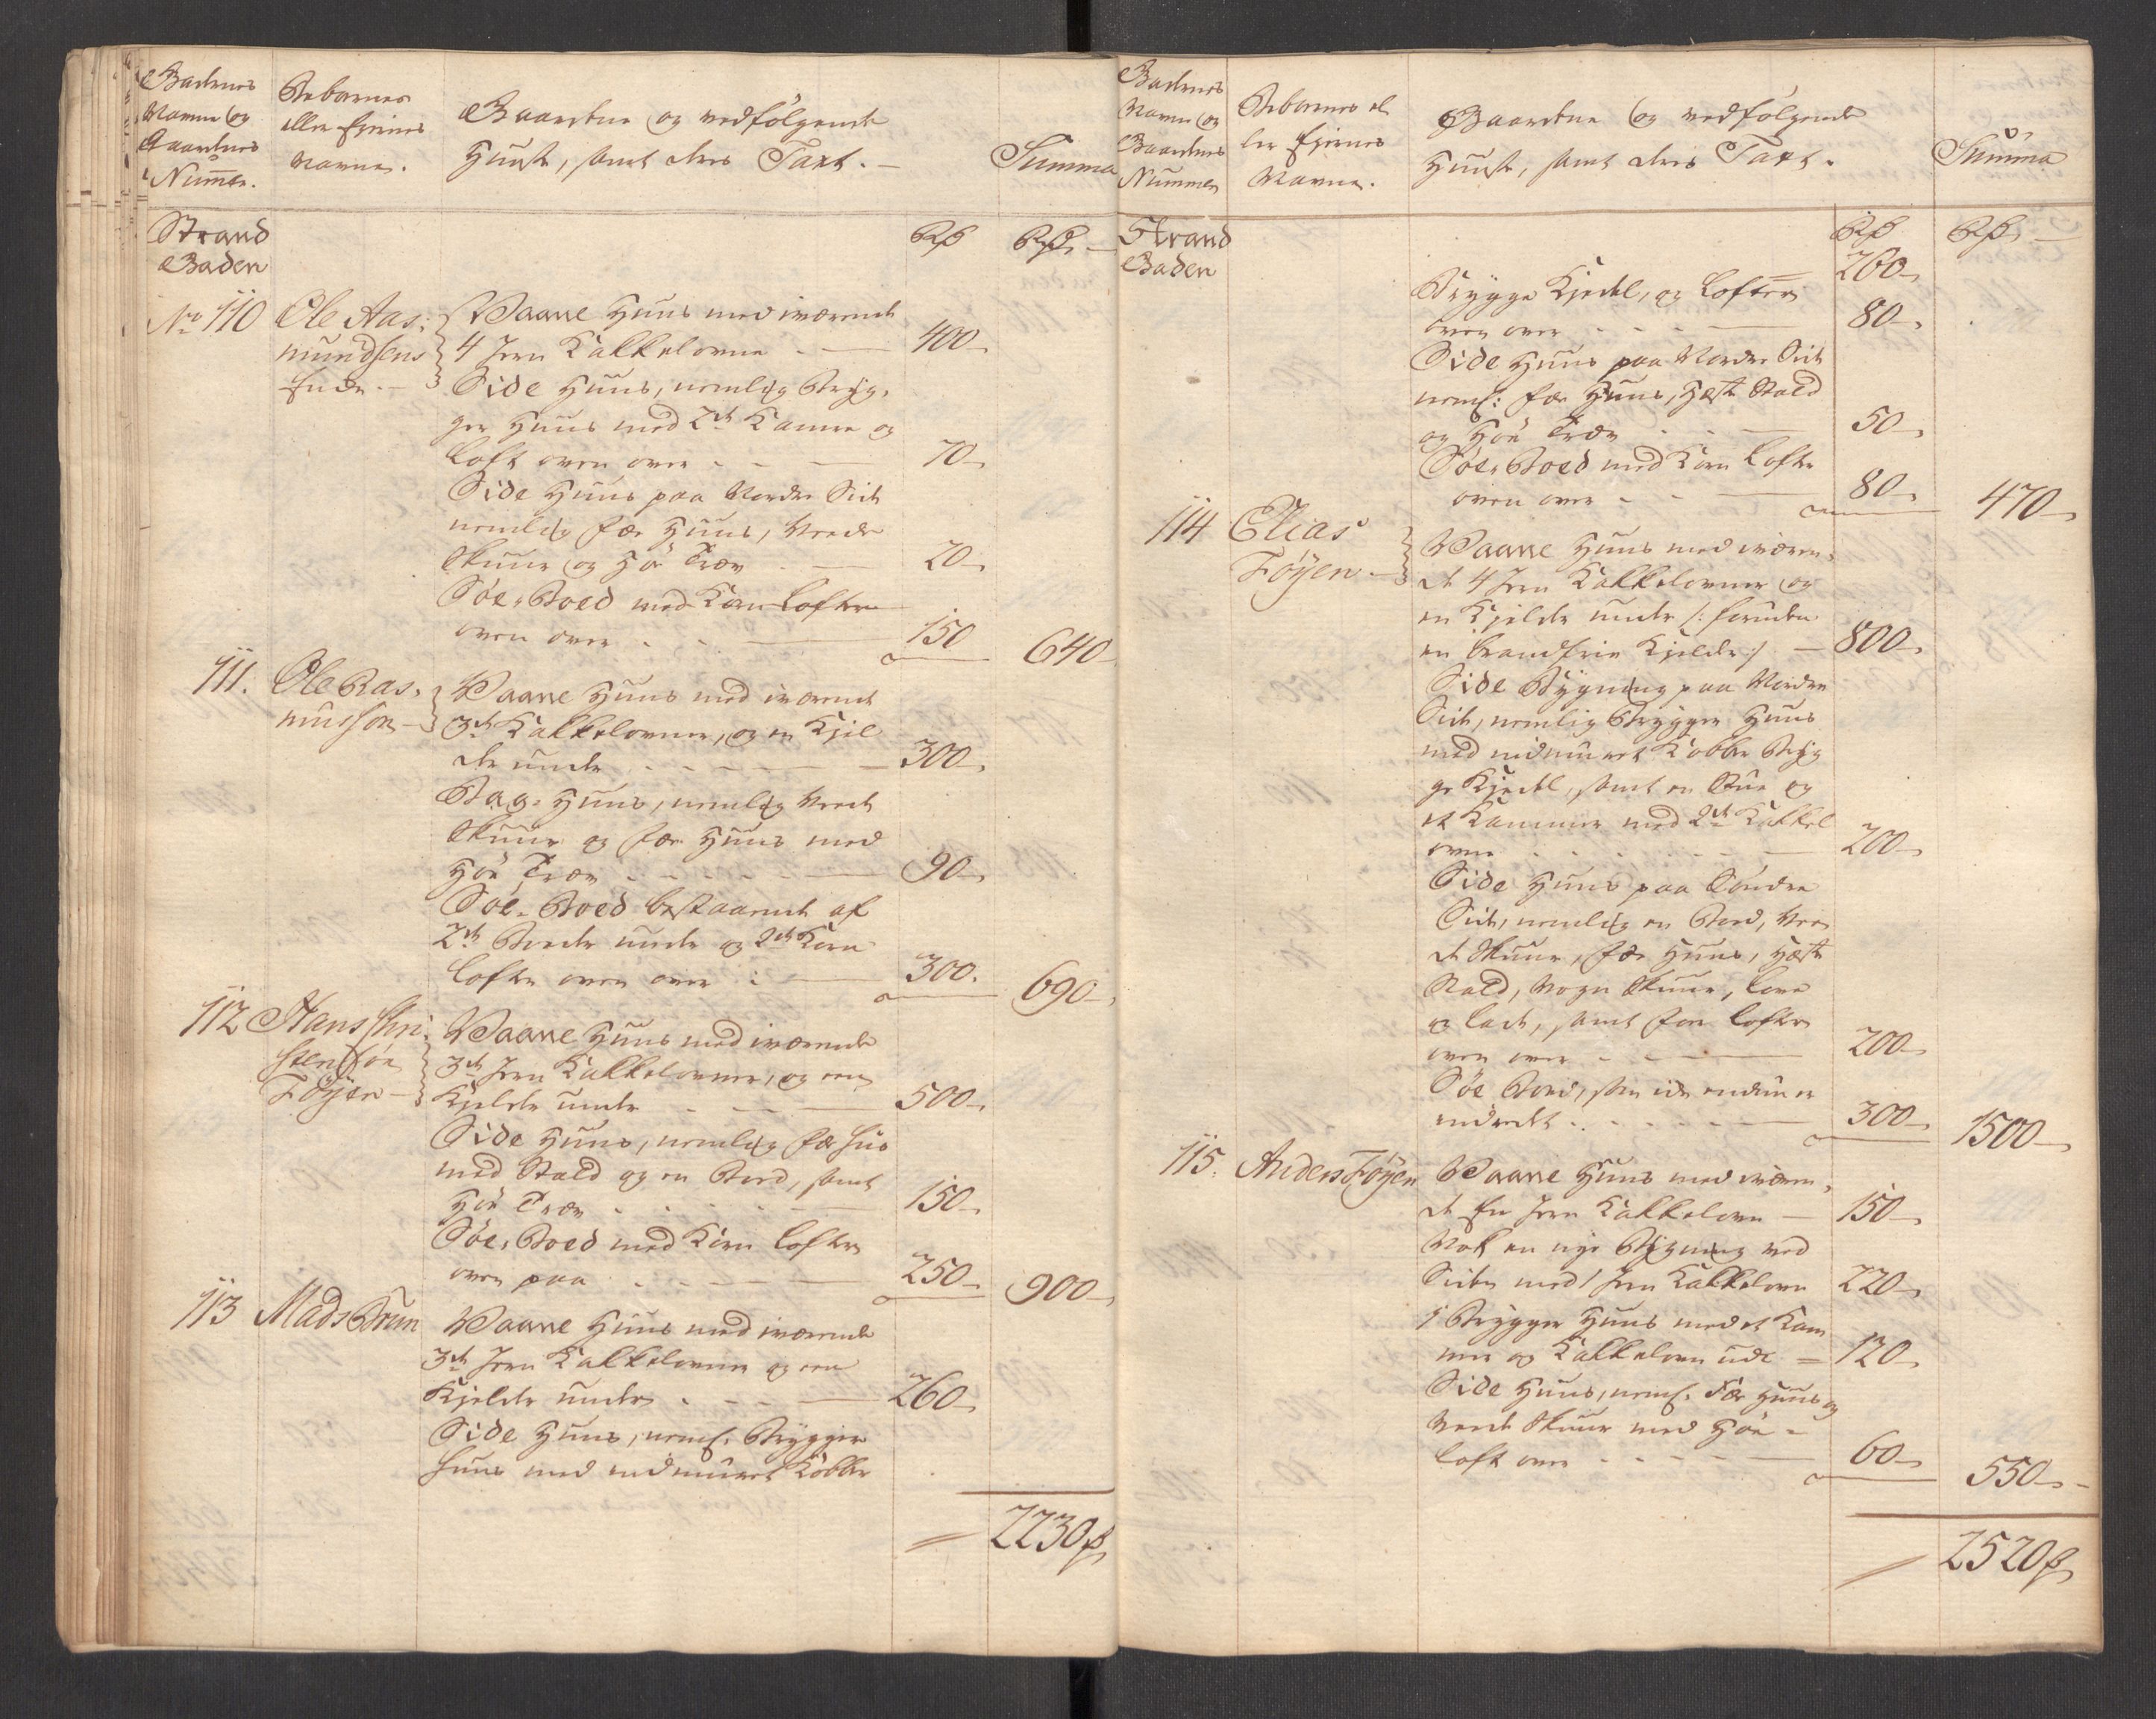 Gadernes
Navne og
Gaardenes
Nummer.
Beboernes
eller Eiernes
Navne.
Gaardene og vedfølgende
Huuse, samt deres Taxt.
Summa
Strand
Gaden
Rd
Rd
No 110
Ole Aas-
mundsens
Enke.
Vaane Huus med iværende
4 Jern Kakkelovne - 400
Side Huus, nemlig Bryg-
ger Huus med 2de Kamre og
Loft oven over - 70
Side Huus paa Nordre Side
nemlig Fæe Huus, Veede
Skuur og Høe Træv - 20
Søe-Boed med Korn Lofter
oven over - 150
640
111.
Ole Ras-
musson
Vaane Huus med iværende
3de Kakkelovner, og en Kjel
der under - 300
Bag-Huus, nemlig Veede
Skuur og Fæe Huus med
Høe Træv - 90
Søe-Boed bestaaende af
2de Boeder under og 2de Korn
Lofter oven over - 300
690
112
Hans Chri-
stensøn
Føyen
Vaane Huus med iværende
3de Jern Kakkelovner, og een
Kjelder under - 500
Side Huus, nemlig Fæ Huus
med Stald og en Boed, samt
Høe Træv - 150
Søe-Boed med Korn Lofter
oven paa - 250
900
113
Mads Brun
Vaane Huus med iværende
3de Jern Kakkelovner og een
Kjelder under - 260
Side Huus, neml. Brygger
Huus med indmuret Kobber
2230 rd
Gadernes
Navne og
Gaardenes
Nummer
Beboernes el
ler Eiernes
Navne.
Gaardene og vedfølgende
Huuse, samt deres Taxt.
Summa
Strand
Gaden
Rd
Rd
260
Brygge Kjedel, og Lofter
oven over - 80
Side Huus paa Nordre Side
neml: Fæe Huus, Hæste Stald
og Høe Træv - 50
Søe-Boed med Korn Lofter
oven over - 80
470
114
Elias
Føyen
Vaane Huus med iværen-
de 4 Jern Kakkelovner og
en Kjelder under /: foruden
en brandfrie Kjelder :/ - 800
Side Bygning paa Nordre
Side, nemlig Brygger Huus
med indmuret Kobber Bryg
ge Kjedel, samt en Stue og
et Kammer med 2de Kakkel
ovne - 200
Side Huus paa Søndre
Side, nemlig en Boed, Vee
de Skuur, Fæe Huus, Hæste
Stald, Vogn Skuur, Love
og Lade, samt Foer Lofter
oven over - 200
Søe Boed, som ikke endnu er
indredt - 300
1500
115.
Anders Føyen
Vaane Huus med iværen-
de En Jern Kakkelovn - 150
Nok en nye Bygning ved
Siden med 1 Jern Kakkelovn 220
1 Brygger Huus med et Kam
mer og Kakkelovn udi = 120
Side Huus, neml. Fæe Huus og
Veede Skuur med Høe-
loft over - 60
550
2520 rd